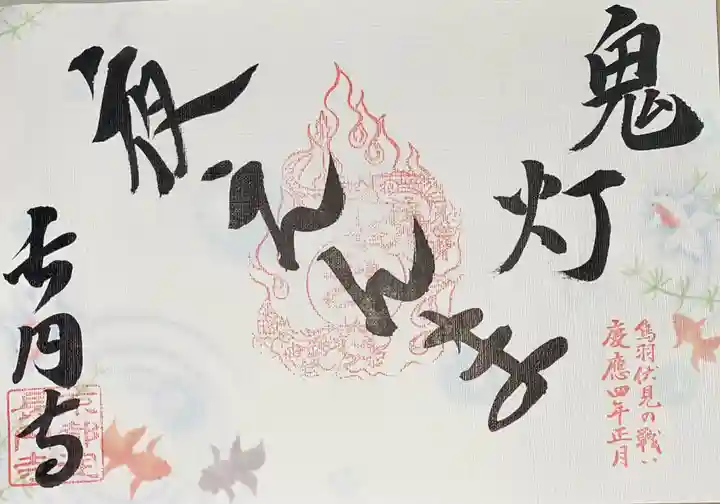 鬼灯
夜えんま
鳥羽伏見の戦い
慶應四年正月
長円寺